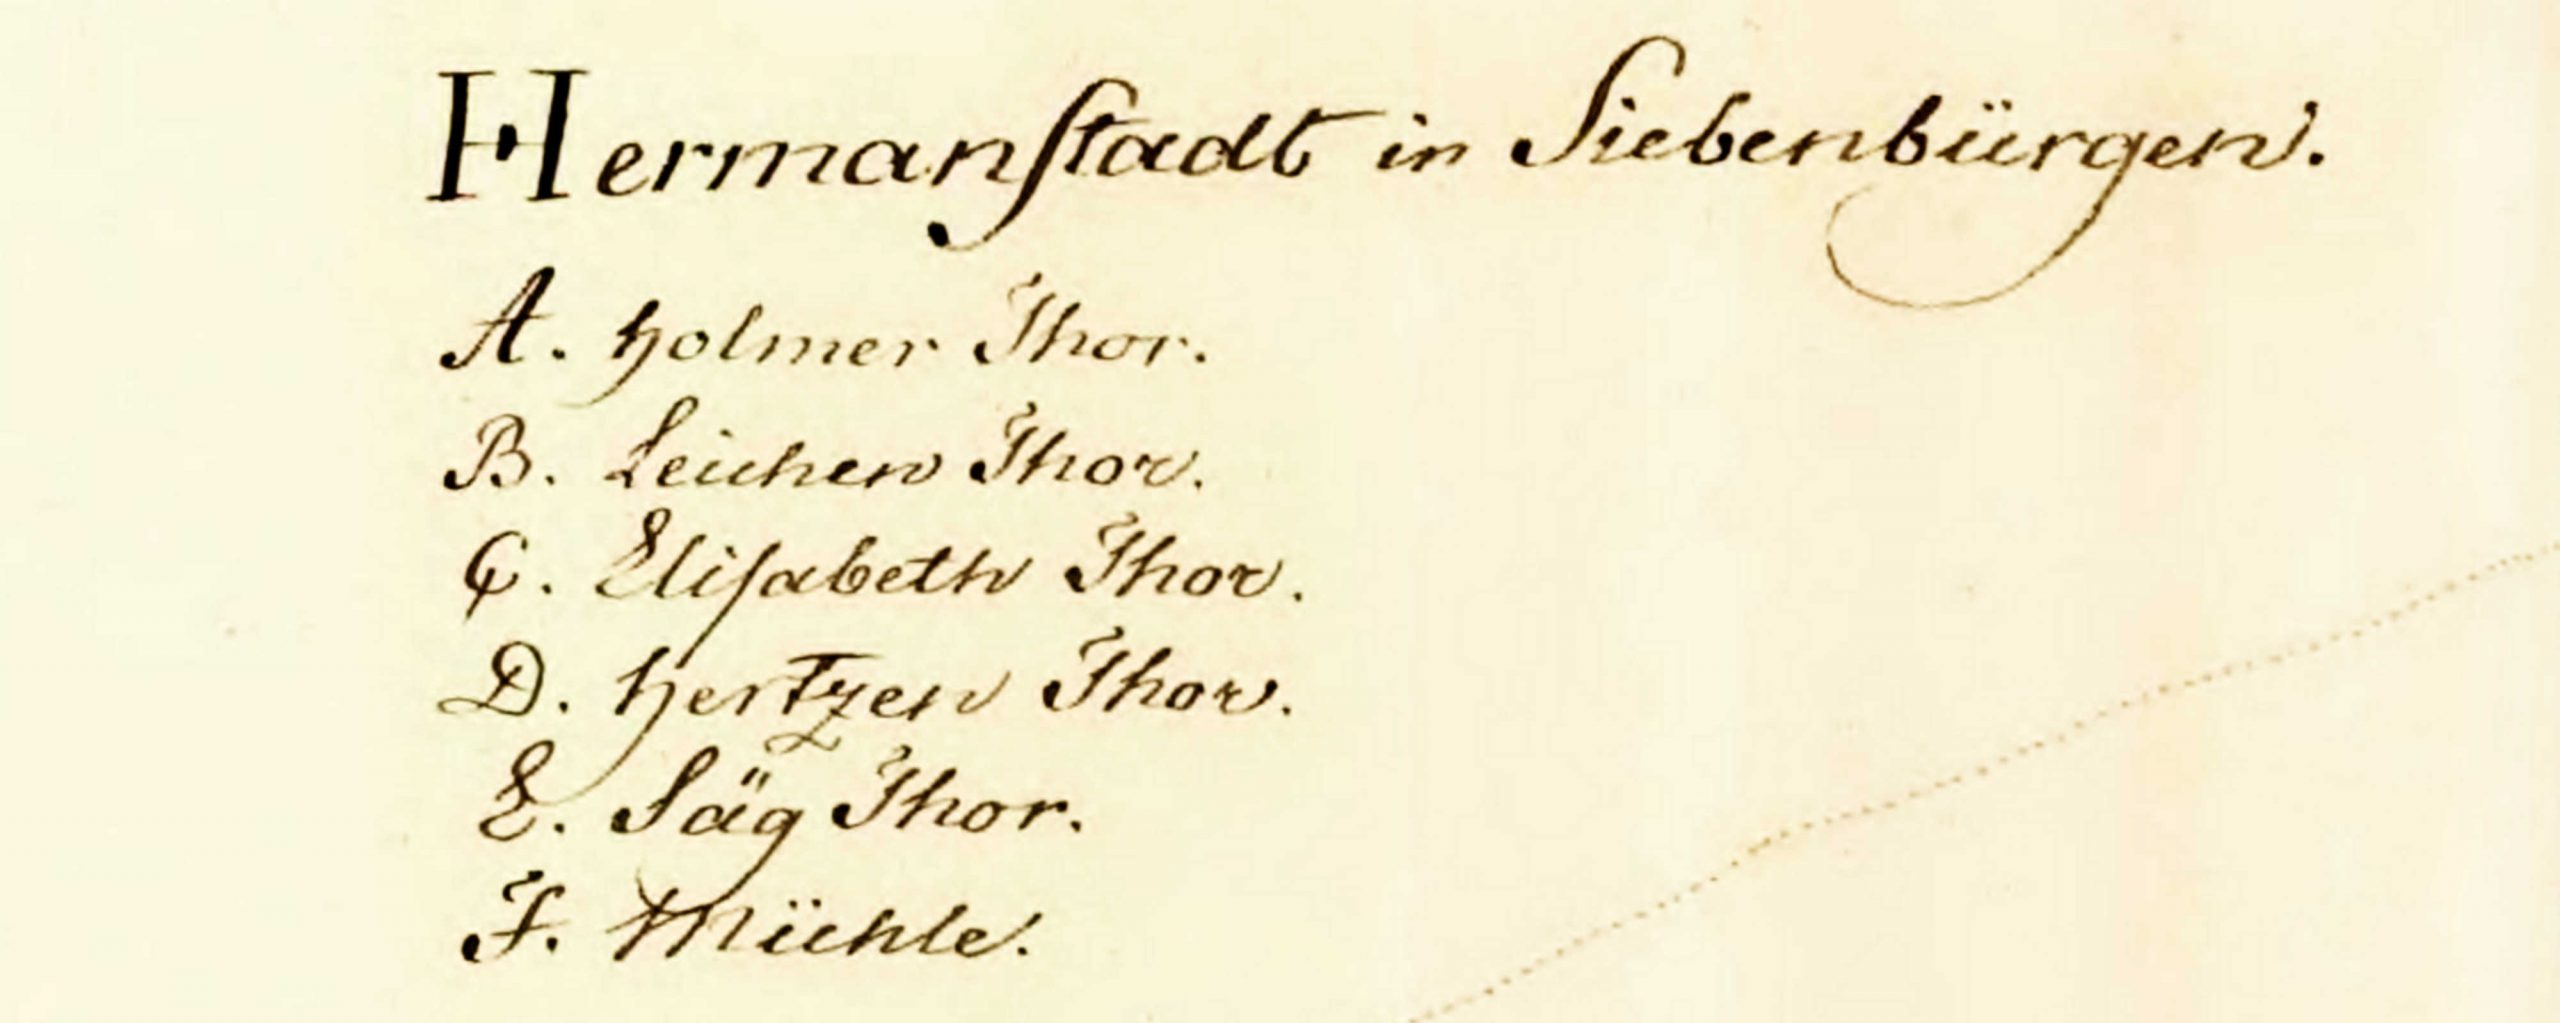 Hermanſtadt in Siebenbürgen.
A. Holmer Thor.
B. Leichen Thor.
C. Eliſabeth Thor.
D. Hertzen Thor.
E. Säg Thor.
F. Mühle.